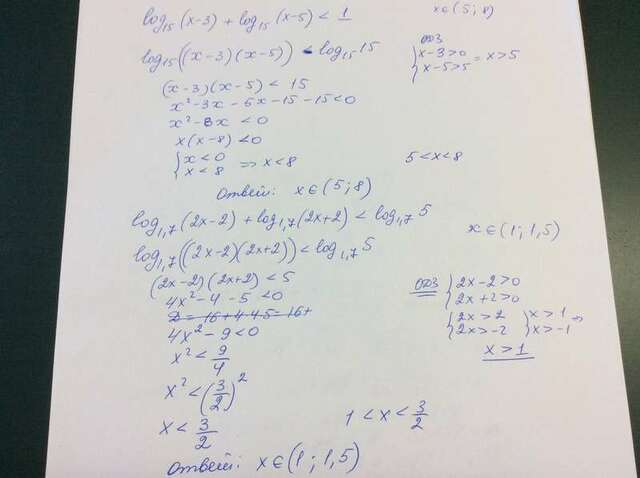 log₁₅(x-3) + log₁₅(x-5) < 1
x∈(5;8)
log₁₅((x-3)(x-5)) < log₁₅15
ОДЗ
{x-3>0
{x-5>5 = x>5
(x-3)(x-5) < 15
x²-3x-5x-15-15<0
x²-8x<0
x(x-8)<0
{x<0
{x<8 => x<8
5<x<8
Ответ: x∈(5;8)
log₁,₇(2x-2) + log₁,₇(2x+2) < log₁,₇5
x∈(1;1,5)
log₁,₇((2x-2)(2x+2)) < log₁,₇5
(2x-2)(2x+2)<5
4x²-4-5<0
D=16+4·4·5=16+
4x²-9<0
x²<9/4
x²<(3/2)²
x<3/2
ОДЗ {2x-2>0
{2x+2>0
{2x>2 {x>1 =>
{2x>-2 {x>-1
x>1
1<x<3/2
Ответ: x∈(1;1,5)